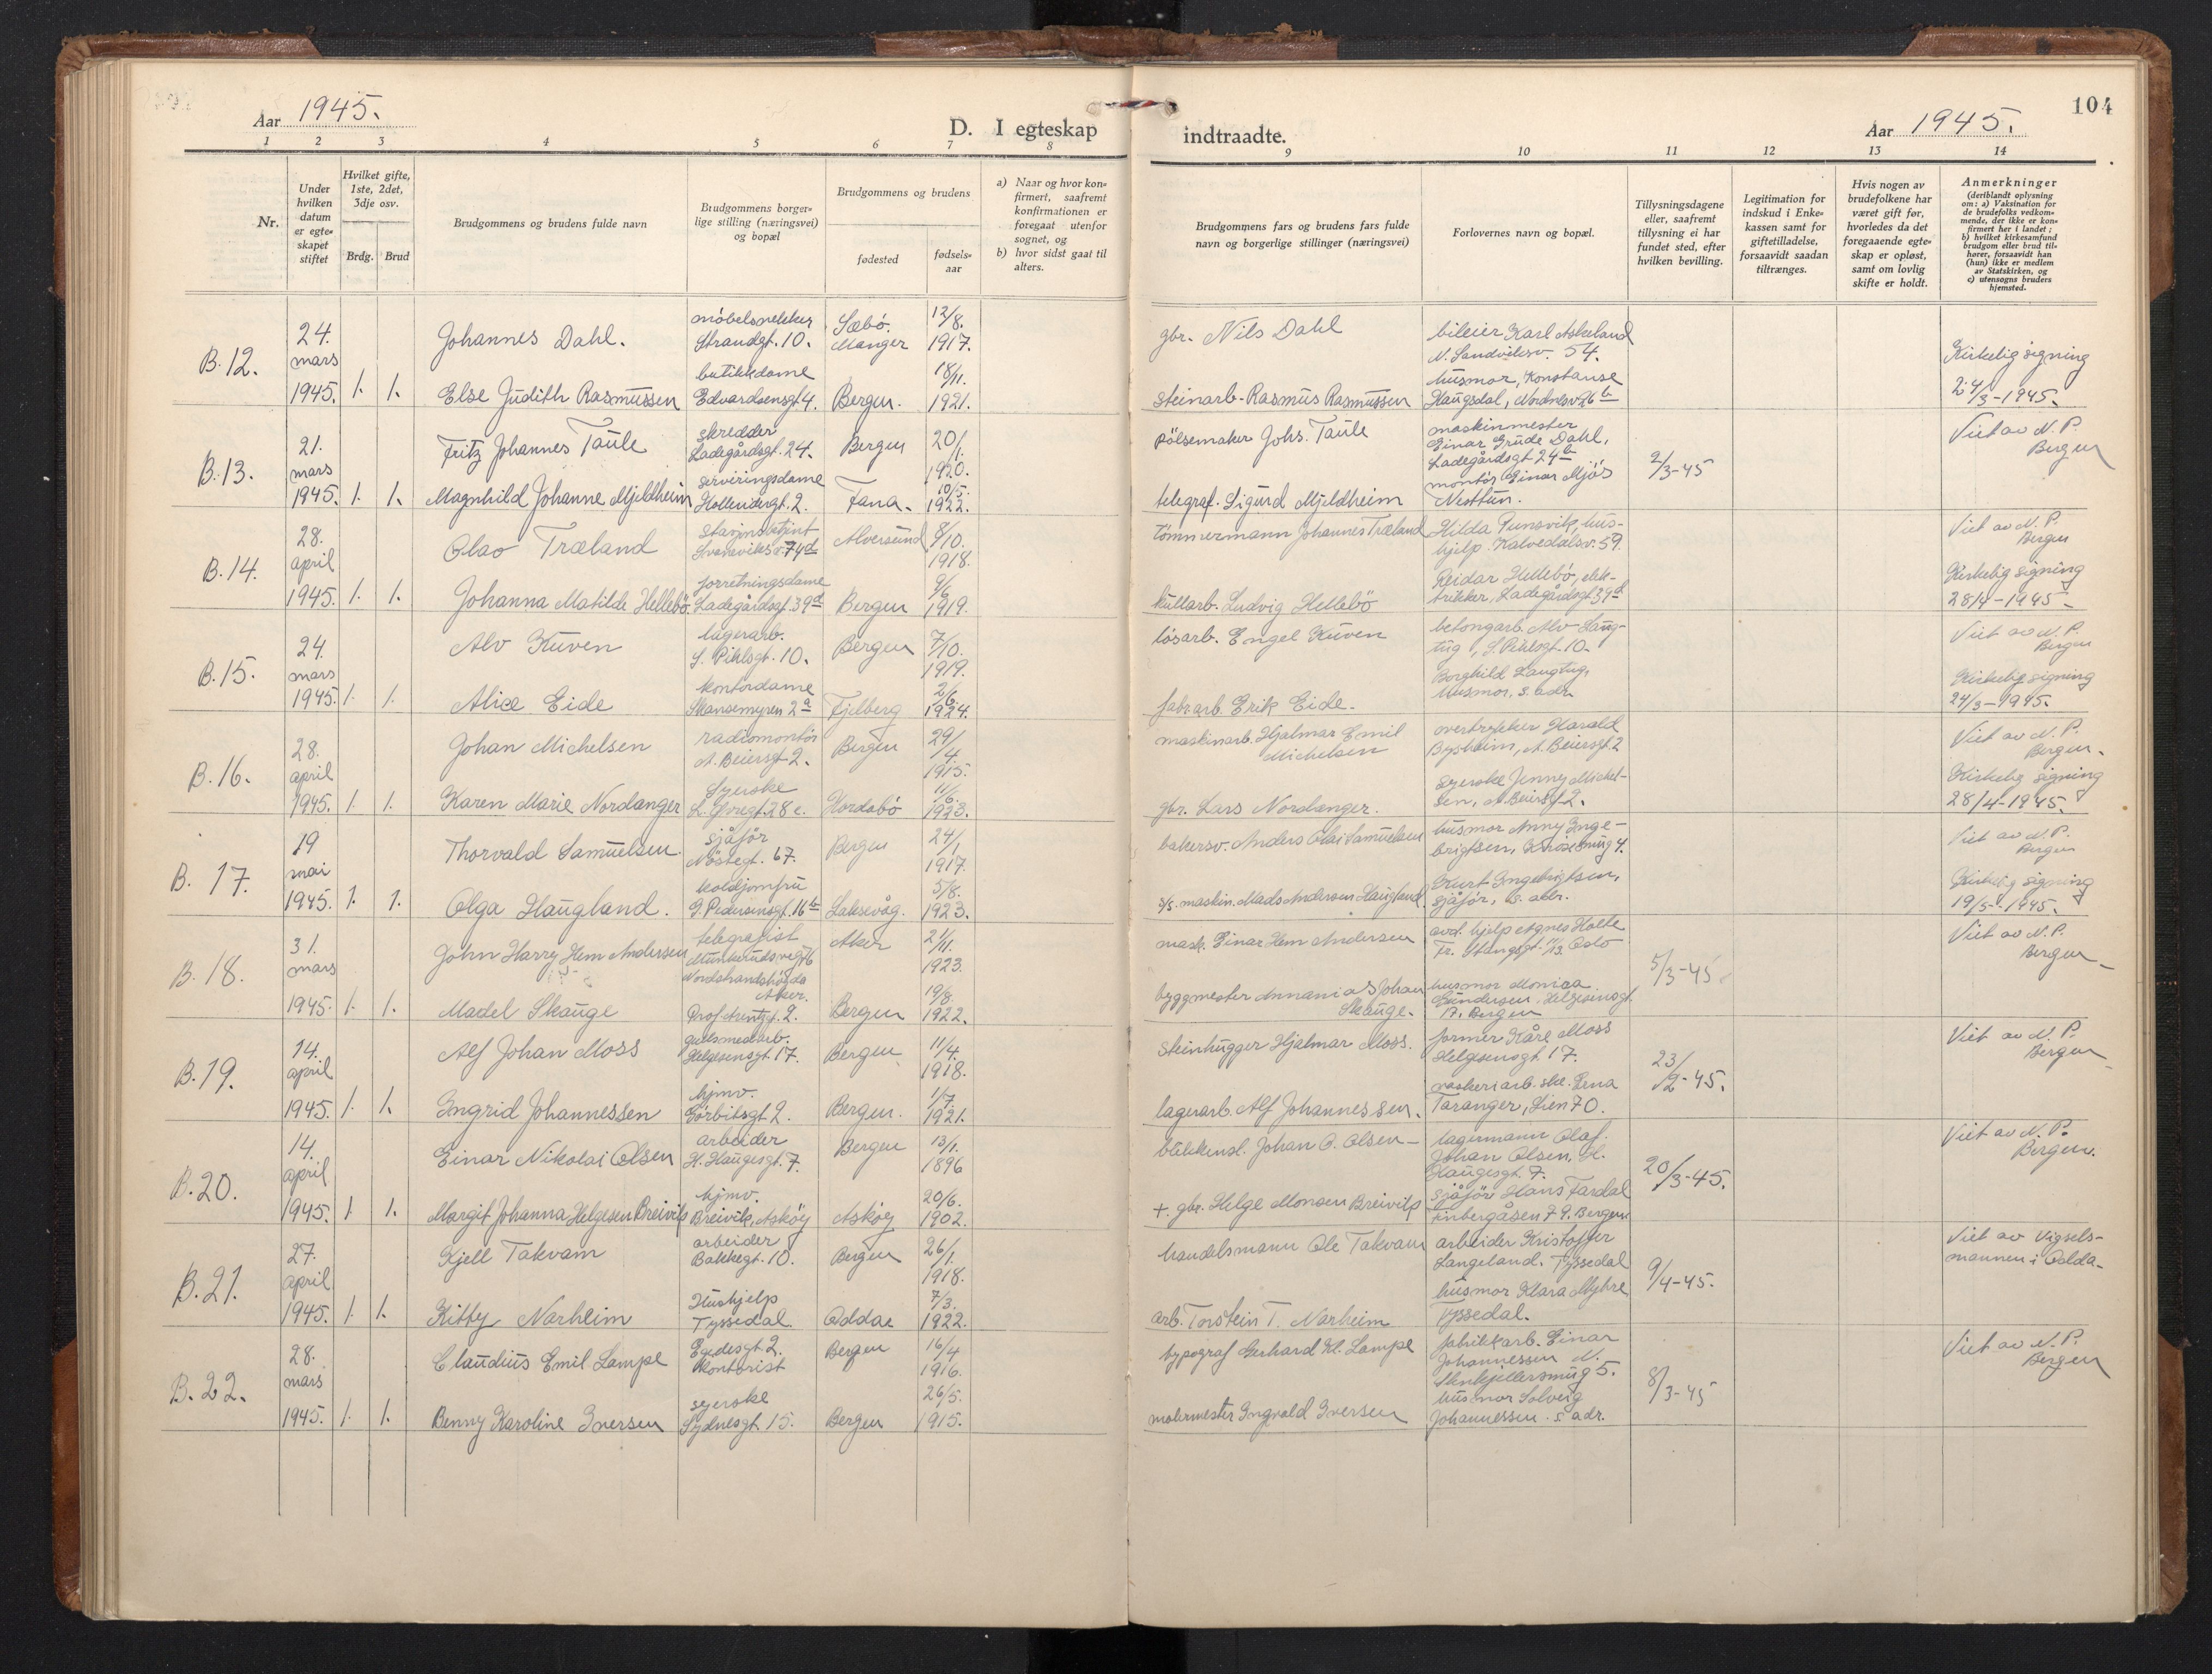 Aar 1945.
D. I egteskap
indtraadte.
Aar 1945.
104
1 2 3 4 5 6 7 8
9 10 11 12 13 14
Nr.
Under hvilken datum er egte= skapet stiftet
Hvilket gifte, 1ste, 2det, 3dje osv.
Brdg. Brud
Brudgommens og brudens fulde navn
Brudgommens borger= lige stilling (næringsvei) og bopæl
Brudgommens og brudens
fødested
fødsels= aar
a) Naar og hvor kon= firmert, saafremt konfirmationen er foregaat utenfor sognet, og
b) hvor sidst gaat til alters.
Brudgommens fars og brudens fars fulde navn og borgerlige stillinger (næringsvei)
Forlovernes navn og bopæl.
Tillysningsdagene eller, saafremt tillysning ei har fundet sted, efter hvilken bevilling.
Legitimation for indskud i Enke= kassen samt for giftetilladelse, forsaavidt saadan tiltrænges.
Hvis nogen av brudefolkene har været gift før, hvorledes da det foregaaende egte= skap er opløst, samt om lovlig skifte er holdt.
Anmerkninger (deriblandt oplysning om: a) Vaksination for de brudefolks vedkom= mende, der ikke er kon= firmert her i landet; b) hvilket kirkesamfund brudgom eller brud til= hører, forsaavidt han (hun) ikke er medlem av Statskirken, og c) utensogns bruders hjemsted.
B. 12. 24. mars 1945. 1. 1.
Johannes Dahl. møbelsnekker Strandgt. 10. Sæbö. Manger 12/8. 1917. gbr. Nils Dahl bileier Karl Askeland N. Sandviksv. 54.
Else Judith Rasmussen butikkdame Edvardsensgt. 4. Bergen. 18/11. 1921. steinarb. Rasmus Rasmussen husmor, Konstanse Haugsdal, Nordnesv. 26b
Kirkelig signing 24/3-1945.
B. 13. 21. mars 1945. 1. 1.
Fritz Johannes Taule skredder Ladegårdsgt. 24. Bergen 20/1. 1920. pölsemaker Johs. Taule maskinmester Einar Grude Dahl, Ladegårdsgt 24b
Magnhild Johanne Mjeldheim serviringsdame Hollendergt. 2. Fana. 10/5. 1922. telegraf. Sigurd Mjeldheim montör Einar Mjös Nesttun.
2/3-45
Viet av N. P. Bergen
B. 14. 28. april 1945. 1. 1.
Olav Træland stasjonsbetjent Svaneviksv. 74d Alversund 8/10. 1918. Tömmermann Johannes Træland Hilda hus- hjelp. Kalvedalsv. 59.
Johanna Matilde Hellebö. forretningsdame Ladegårdsgt. 39d Bergen 9/6 1919. kullarb. Ludvig Hellebö Reidar Hellebö, elek- trikker, Ladegårdsgt 39d
Viet av N. P. Bergen
Kirkelig signing 28/4-1945
B. 15. 24. mars 1945. 1. 1.
Alv Kuven lagerarb. S. Pihlsgt. 10. Bergen 7/10. 1919. lösarb. Engel Kuven betongarb. Alv Laug- tug, S. Pihlsgt. 10.
Alice Eide kontordame Skansemyren 2a Fjelberg 2/6. 1924. fabr. arb. Erik Eide. Borghild Laugtug, husmor, s. adr.
Viet av N. P. Bergen
Kirkelig signing 24/3-1945.
B. 16. 28. april 1945. 1. 1.
Johan Michelsen radiomontör A. Beiersgt 2. Bergen 29/4. 1915. maskinarb. Hjalmar Emil Michelsen overtrekker Harald Bysheim, A. Beiersgt 2
Karen Marie Nordanger Syerske 28 c. Hordabö 11/6. 1923. gbr. Lars Nordanger. Syerske Jenny Michel- sen, A. Beiersgt 2.
Viet av N. P. Bergen.
Kirkelig signing 28/4-1945.
B. 17. 19 mai 1945. 1. 1.
Thorvald Samuelsen. sjåför Nöstegt. 67. Bergen 24/1. 1917. bakersv. Anders Olai Samuelsen husmor Anny Inge- brigtsen, 4.
Olga Haugland. koldjomfru G. Pedersensgt. 16b Laksevåg. 5/8. 1923. s/s. maskin. Mads Andersen Haugland. Kurt Ingebrigtsen, sjåför, s. adr.
Viet av N. P. Bergen
Kirkelig signing 19/5-1945.
B. 18. 31. mars 1945. 1. 1.
John Harry Hem Andersen telegrafist Nordstrandshögda Aker. Aker 21/11. 1923. mask. Einar Hem Andersen avd. hjelp Agnes Holte Fr. Stangsgt. 11/13 Oslo
Madel Skauge Prof. 2. Bergen 19/8. 1922. byggmester Annanias Johan Skauge. husmor Monica Gundersen. Helgesensgt. Bergen
5/3-45
Viet av N. P. Bergen
B. 19. 14. april 1945. 1. 1.
Alf Johan Moss gullsmedarb. Helgesensgt. 17. Bergen 11/4. 1918. Steinhugger Hjalmar Moss. former Kåre Moss Helgesensgt. 17.
Ingrid Johannessen hjmv. Görbitsgt 2. Bergen. 1/7. 1921. lagerarb. Alf Johannessen. vaskeriarb. ske. Lena Taranger, Lien 70.
23/2-45.
Viet av N. P. Bergen
B. 20. 14. april 1945. 1. 1.
Einar Nikolai Olsen arbeider H. Haugesgt. 7. Bergen 13/1. 1896 blikkensl. Johan O. Olsen lagermann Olaf Johan Olsen, H. Haugesgt. 7.
Margit Johanna Helgesen Breivik hjmv. Breivik, Asköy Asköy 20/6. 1902. +. gbr. Helge Monsen Breivik sjåför Hans Fardal Finbergåsen 79. Bergen
20/3-45.
Viet av N. P. Bergen.
B. 21. 27. april 1945. 1. 1.
Kjell Takvam arbeider Bakkegt. 10. Bergen 26/1. 1918. handelsmann Ole Takvam arbeider Kristoffer Langeland. Tyssedal
Kitty Narheim Hushjelp Tyssedal. Odda 7/3. 1922. arb. Torstein T. Narheim husmor Klara Myhre Tyssedal.
9/4-45.
Viet av Vigsels- mannen i Odda
B. 22. 28. mars 1945. 1. 1.
Claudius Emil Lampe Egedesgt 2. Kontorist Bergen 16/4 1916. typograf Gerhard Kl. Lampe fabrikkarb. Einar Johannessen N. Stenkjellersmug 5.
Benny Karoline Iversen syerske Sydnesgt 15. Bergen 26/5. 1915. malermester Ingvald Iversen husmor Solveig Johannessen. s. adr.
8/3-45
Viet av N. P. Bergen